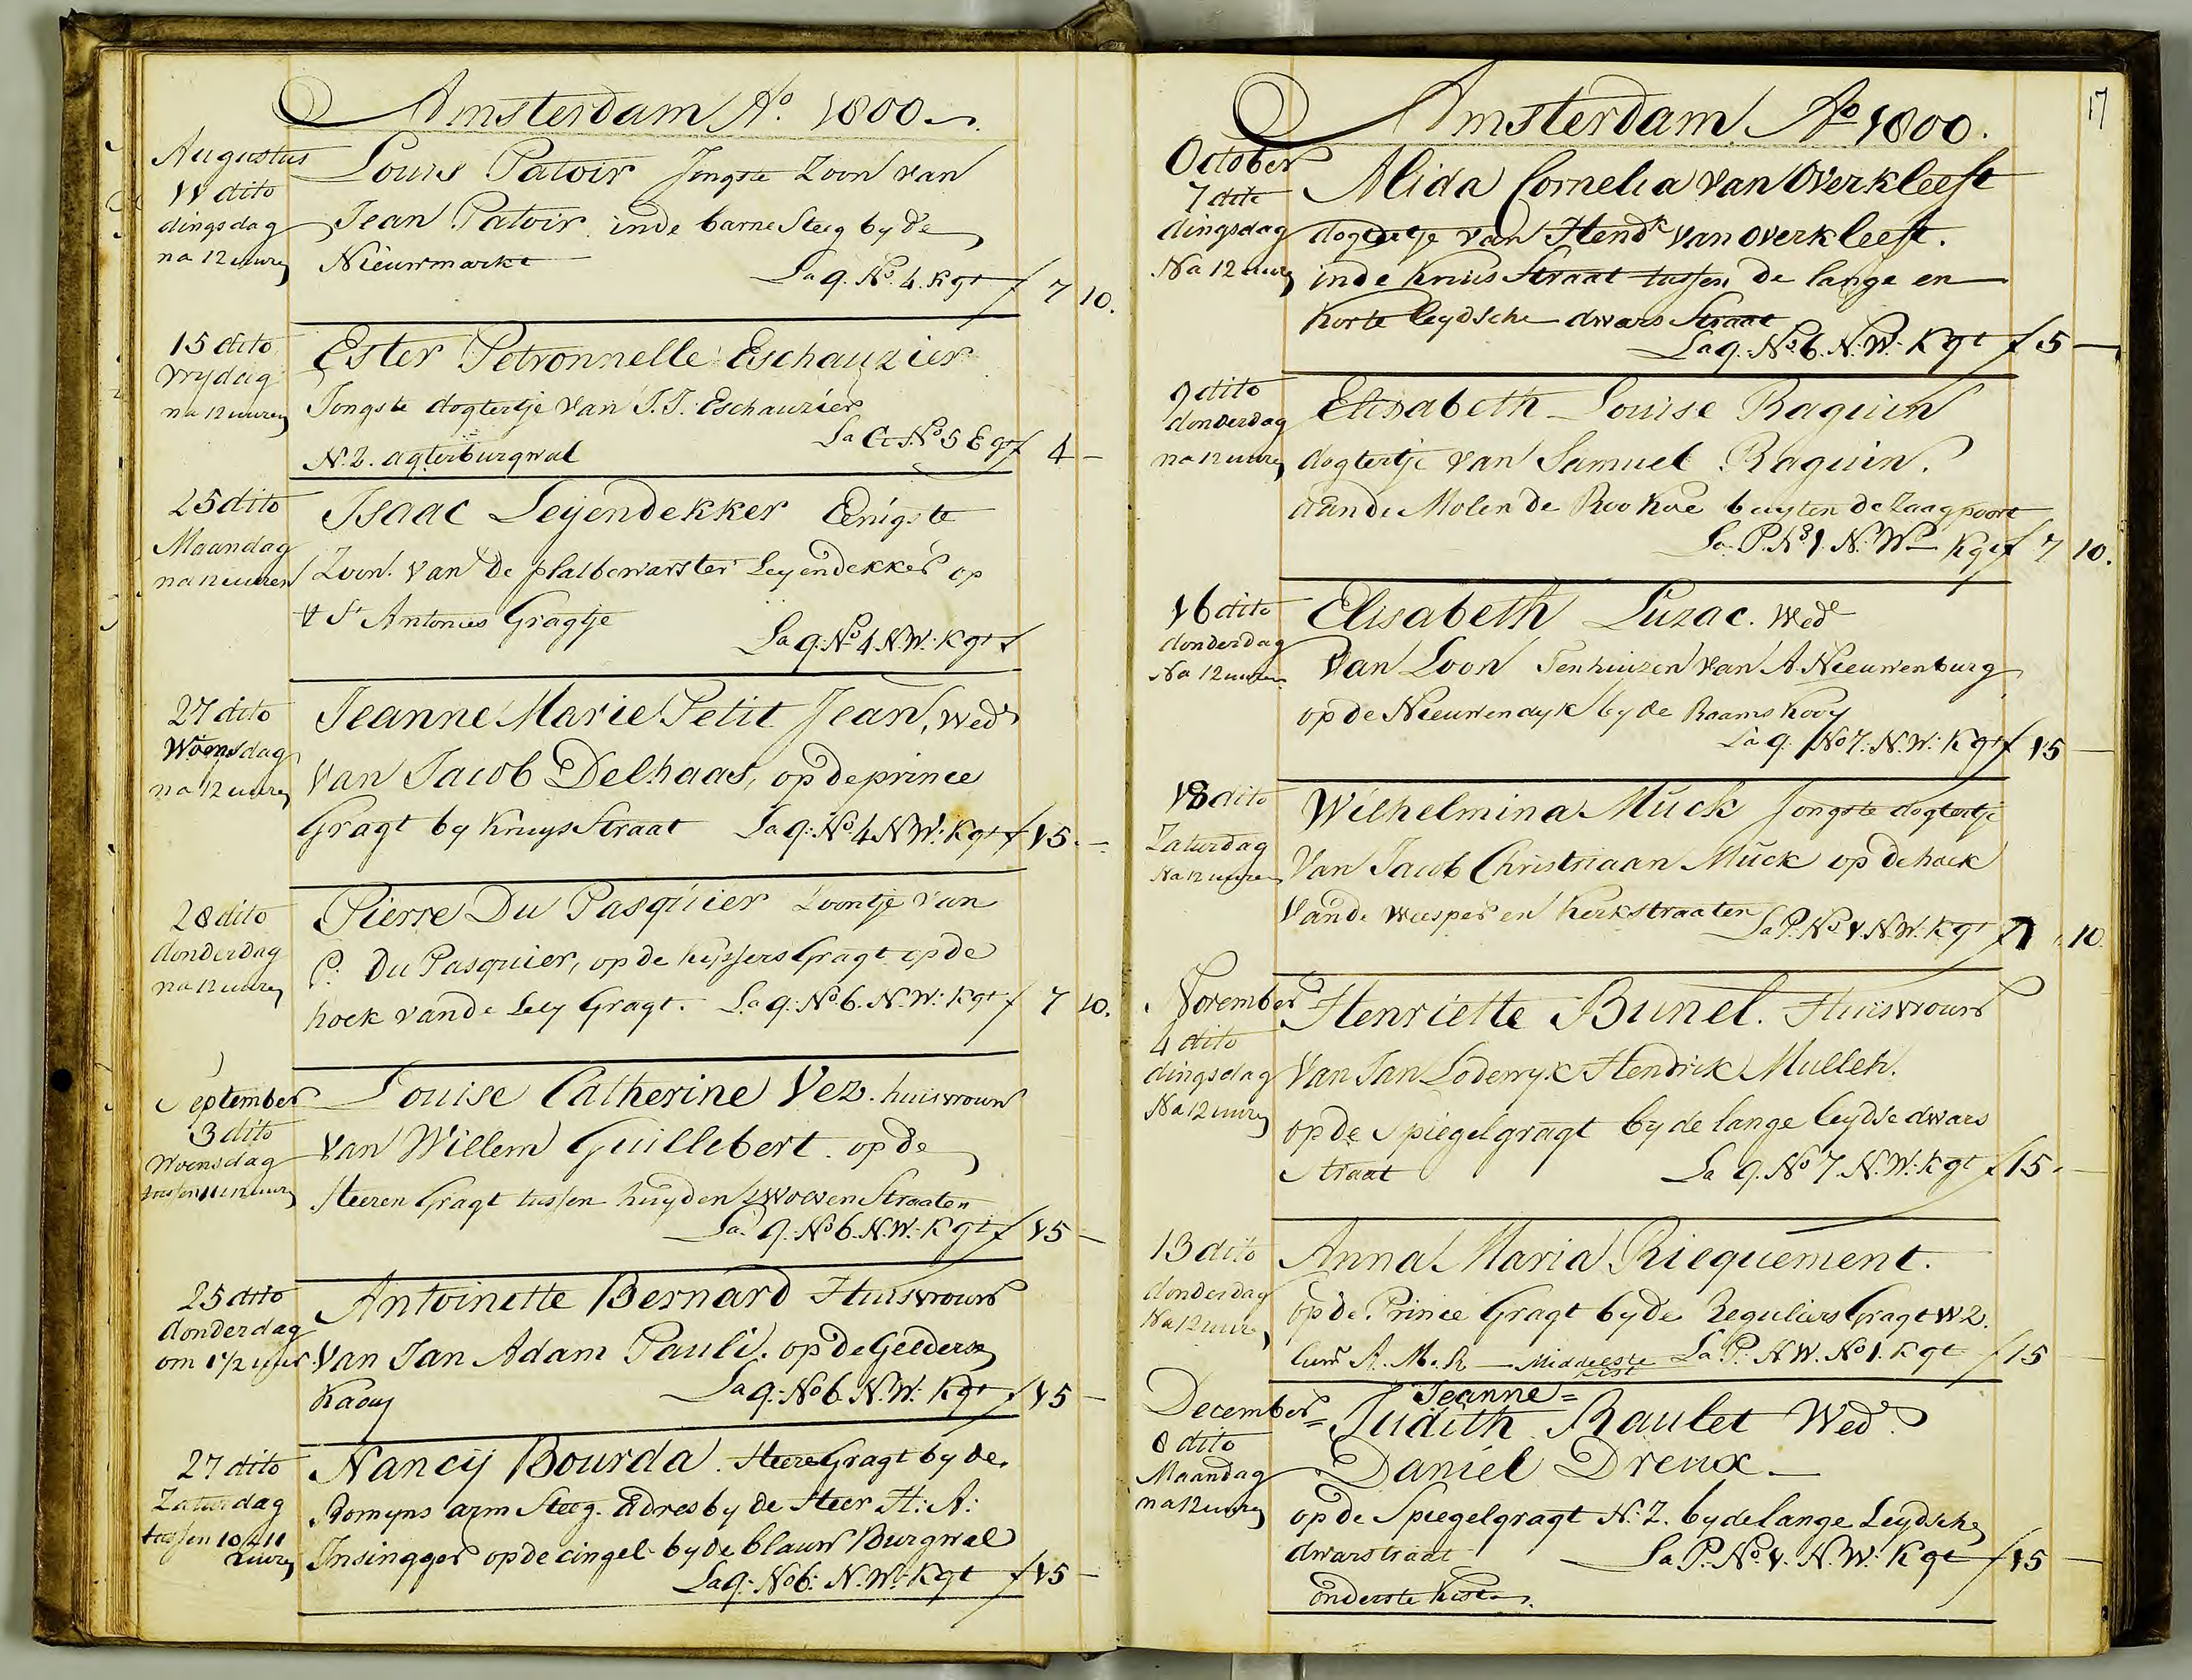 Amsterdam Ao. 1800
Augustus
11 dito
dingsdag
na 12 uuren
Louis Patoir Jongste Zoon van
Jean Patoir inde barne Steeg by de
Nieuwmarkt
La q. No. 4. Kgt f 7 10.
15 dito
vrydag
na 12 uuren
Ester Petronnelle Eschauzier
Jongste dogtertje van J. J. Eschauzier
La C No 5 E gt f 4 —
N. Z. agterburgwal
25 dito
Maandag
na 12 uuren
Isaac Leyendekker Eenigste
Zoon van de Leyendekker op
St Antonies Gragtje
La q: No 4 N.W: Kgt f
27 dito
Woensdag
na 12 uuren
Jeanne Marie Petit Jean, Wed
van Jacob Delhaas, op de prince
Gragt by Kruys Straat La q: No 4 N.W: Kgt f 15. —
28 dito
donderdag
na 12 uuren
Pierre Du Pasquier Zoontje van
P. Du Pasquier, op de Keyssers Gragt op de
hoek vande Ley Gragt. La q: No 6. N. W: Kgt f 7 10.
September
3 dito
Woensdag
tussen 11 & 12 uuren
Louise Catherine Vez. huisvrouw
van Willem Guillebert. op de
Heeren Gragt tussen huyden & Wolven Straaten
La. q. No 6. N.W: Kgt f 15 —
25 dito
donderdag
om 1 1/2 uur
Antoinette Bernard Huisvrouw
van Jan Adam Pauli. op de Gelderse
Kaay La q: No 6 N. W: Kgt f 15 —
27 dito
Zaturdag
tussen 10 & 11
uuren
Nancij Bourda. Heere Gragt by de
Romyns arm Steeg. adres by de Heer H: A:
Insingger op de cingel by de blauw Burgwal
La q: No 6: N. W: Kgt f 15 —
17
Amsterdam Ao 1800.
October
7 dito
dingsdag
Na 12 uuren
Alida Cornelia van Overkleeft
dogtertje van Hendk van Overkleeft.
inde Kruis Straat tussen de lange en
Korte leydsche dwars Straat
La q: No 6. N. W: Kgt f 5 —
9 dito
donderdag
na 12 uuren
Elisabeth Louise Raguin
dogtertje van Samuel Raguin.
aande Molen de Roo Koe buyten de Zaagpoort
La P. No 1. N: W. Kgt f 7 10.
16 dito
donderdag
Na 12 uuren
Elisabeth Luzac. Wede
Van Loon Tenhuizen van A. Nieuwenburg
op de Nieuwendyk by de Raams Kooy
La q. No 7. N. W: Kgt f 15 —
18 dito
Zaturdag
Na 12 uuren
Wilhelmina Muck Jongste dogtertje
Van Jacob Christiaan Muck op de hoek
Vande Weesper en Kerkstraaten
La P. No 1. N. W: Kgt f 7 10.
November
4 dito
dingsdag
Na 12 uuren
Henriette Bunel. Huisvrouw
Van Jan Lodewyk Hendrik Muller.
op de Spiegelgragt by de lange leydse dwars
Straat La q. No 7. N. W: Kgt f 15. —
13 dito
donderdag
Na 12 uuren
Anna Maria Riequement.
op de Prince Gragt by de Reguliers Gragt W Z.
A. M. R — Middelste La P. N W. No 1. Kgt f 15 —
Kist
December
8 dito
Maandag
na 12 uuren
Jeanne =
= Judith Raulet Wed.
Daniel Dreux —
op de Spiegelgragt N: Z. by de lange Leydsche
dwarstraat La P. No 1. N. W: Kgt f 15 —
onderste Kist.